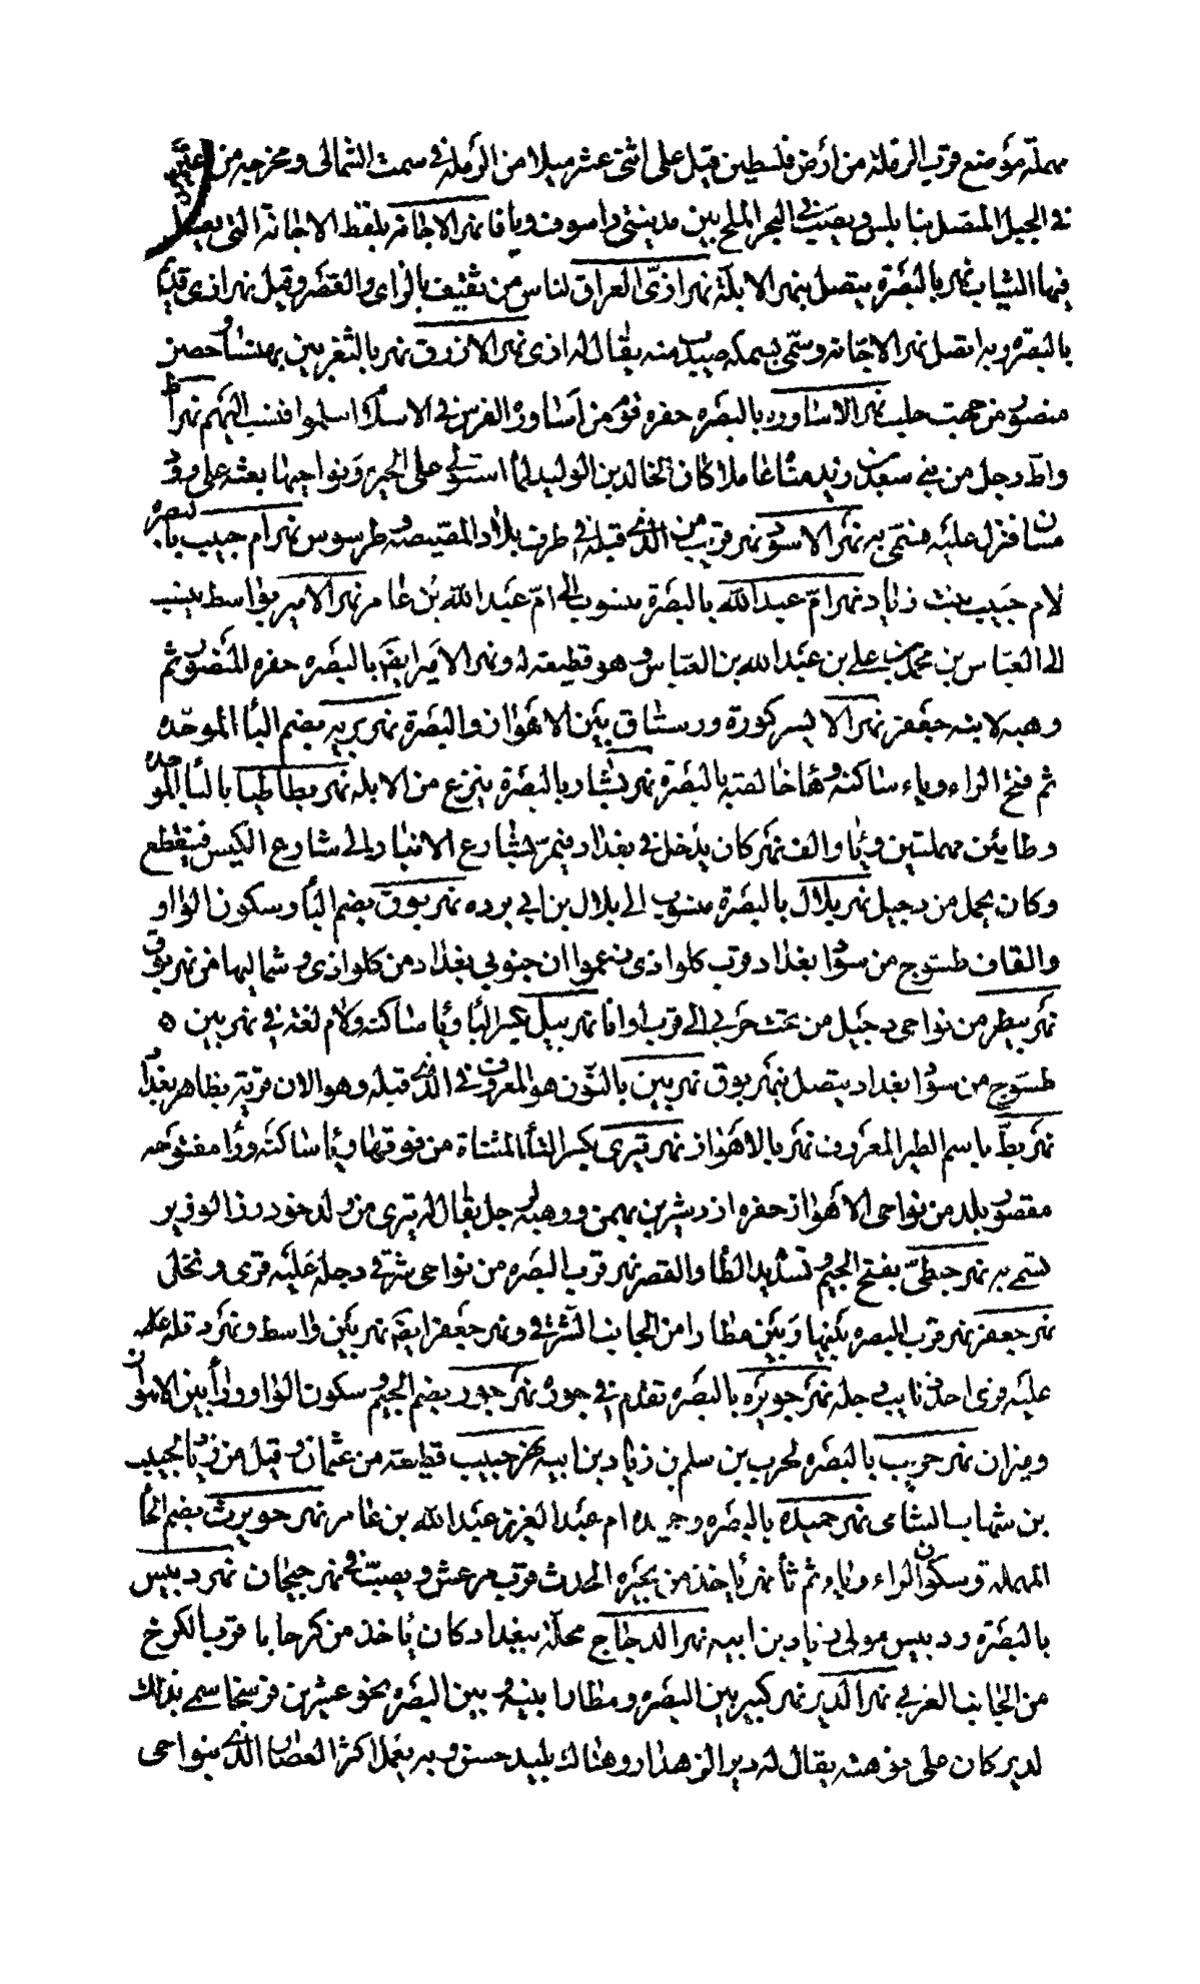 مهملة موضع قرب الرملة من ارض فلسطين قيل على اثنى عشر ميلا من الرملة فى سمت الشمالى ومخرجه من عين
فى الجبل المتصل بنابلس ويصب فى البحر الملح بين مدينتى ارسوف ويافا نهر الاجانة بلفظ الاجانة التى يغسل
فيها الثياب نهر بالبصرة يتصل بنهر الابلة نهر اذى العراق لناس من ثقيف بالراى والقصر وقيل نهر اذى قديم
بالبصرة وبه اتصل نهر الاجانة وسمى بسمكه صيد منه يقال له اذى نهر الازرق نهر بالثغر بين بهسنا وحصن
منصور من جهت حلب نهر الاساوره بالبصره حفره قوم من اساورة الفرس فى الاسلام اسلموا فنسب اليهم نهر اط
واط رجل من بنى سعد بن زيد مناة عاملا كان لخالد بن الوليد لما استولى على الحيرة ونواحيها بعثه على دورق
ميسان فنزل عليه فسمى به نهر الاسود نهر قرب من الذى قبله فى طرف بلاد المصيصة وطرسوس نهر ام حبيب بالبصره
لام حبيب بنت زياد نهر ام عبد الله بالبصرة منسوب الى ام عبد الله بن عامر نهر الامير بواسط ينسب
الى العباس بن محمد بن على بن عبد الله بن العباس وهو قطيعة له ونهر الامير ايضا بالبصره حفره المنصور ثم
وهبه لابنه جعفر نهر الايسر كورة ورستاق بين الاهواز والبصرة نهر بريه بضم البا الموحده
ثم فتح الراء وياء ساكنه وها خالصة بالبصرة نهر بشار بالبصرة ينزع من الابله نهر بطاطيا بالبا الموحده
وطائين مهملتين ويا والف نهر كان يدخل فى بغداد فيمر بشارع الانبار الى شارع الكبس فينقطع
وكان يحمل من دجيل نهر بلال بالبصرة منسوب الى بلال بن ابى برده نهر بوق بضم البا وسكون الواو
والقاف طسوج من سواد بغداد قرب كلواذى زعموا ان جنوبى بغداد من كلواذى وشماليها من نهر بوق
نهر بيطر من نواحى دجيل من تحت حربى الى قرب اوانا نهر بيل بكسر البا ويا ساكنه ولام لغة فى نهر بين ه
طسوج من سواد بغداد يتصل بنهر بوق نهر بين بالنون هو المعروف فى الذى قبله وهو الان قرية بظاهر بغداد
نهر بط باسم الطير المعروف نهر بالاهواز نهر تيرى بكسر التا المثناة من فوقها ويا ساكنه ورا مفتوحه
مقصور بلد من نواحى الاهواز حفره اردشير بن بهمن ووهبه لرجل يقال له تيرى من ولد خودرز الوزير
تسمى به نهر جطى بفتح الجيم وتشديد الطا والقصر نهر قرب البصره من نواحى شرقى دجلة عليه قرى ونخل
نهر جعفر نهر قرب البصره بينها وبين مطارا من الجانب الشرقى ونهر جعفر ايضا نهر بين واسط ونهر دقله
عليه قرى احد ذنايب دجله نهر جويره بالبصره تقدم فى جوره نهر جور بضم الجيم وسكون الواو ورا بين الاهواز
وميزان نهر حرب بالبصره لحرب بن سلم بن زياد بن ابيه نهر حبيب قطيعة من عثمان وقيل من زياد لحبيب
بن شهاب الشامى نهر حميدة بالبصره وحميده ام عبد العزيز عبد الله بن عامر نهر حوريث بضم الحا
المهملة وسكون الراء ويا وثم ثا نهر ياخذ من بحيرة الحدث قرب مرعش ويصب فى نهر جيحان نهر دبيس
بالبصرة ودبيس مولى زياد بن ابيه نهر الدجاج محلة ببغداد كان ياخذ من كرخايا قرب الكرخ
من الجانب الغربى نهر الدير نهر كبير بين البصره ومطارا بينه وبين البصره نحو عشرين فرسخا سمى بذلك
لدير كان على فوهته يقال له دير الزهدار وهناك بليد حسن وبه يعمل اكثر الغضار الذى بنواحى